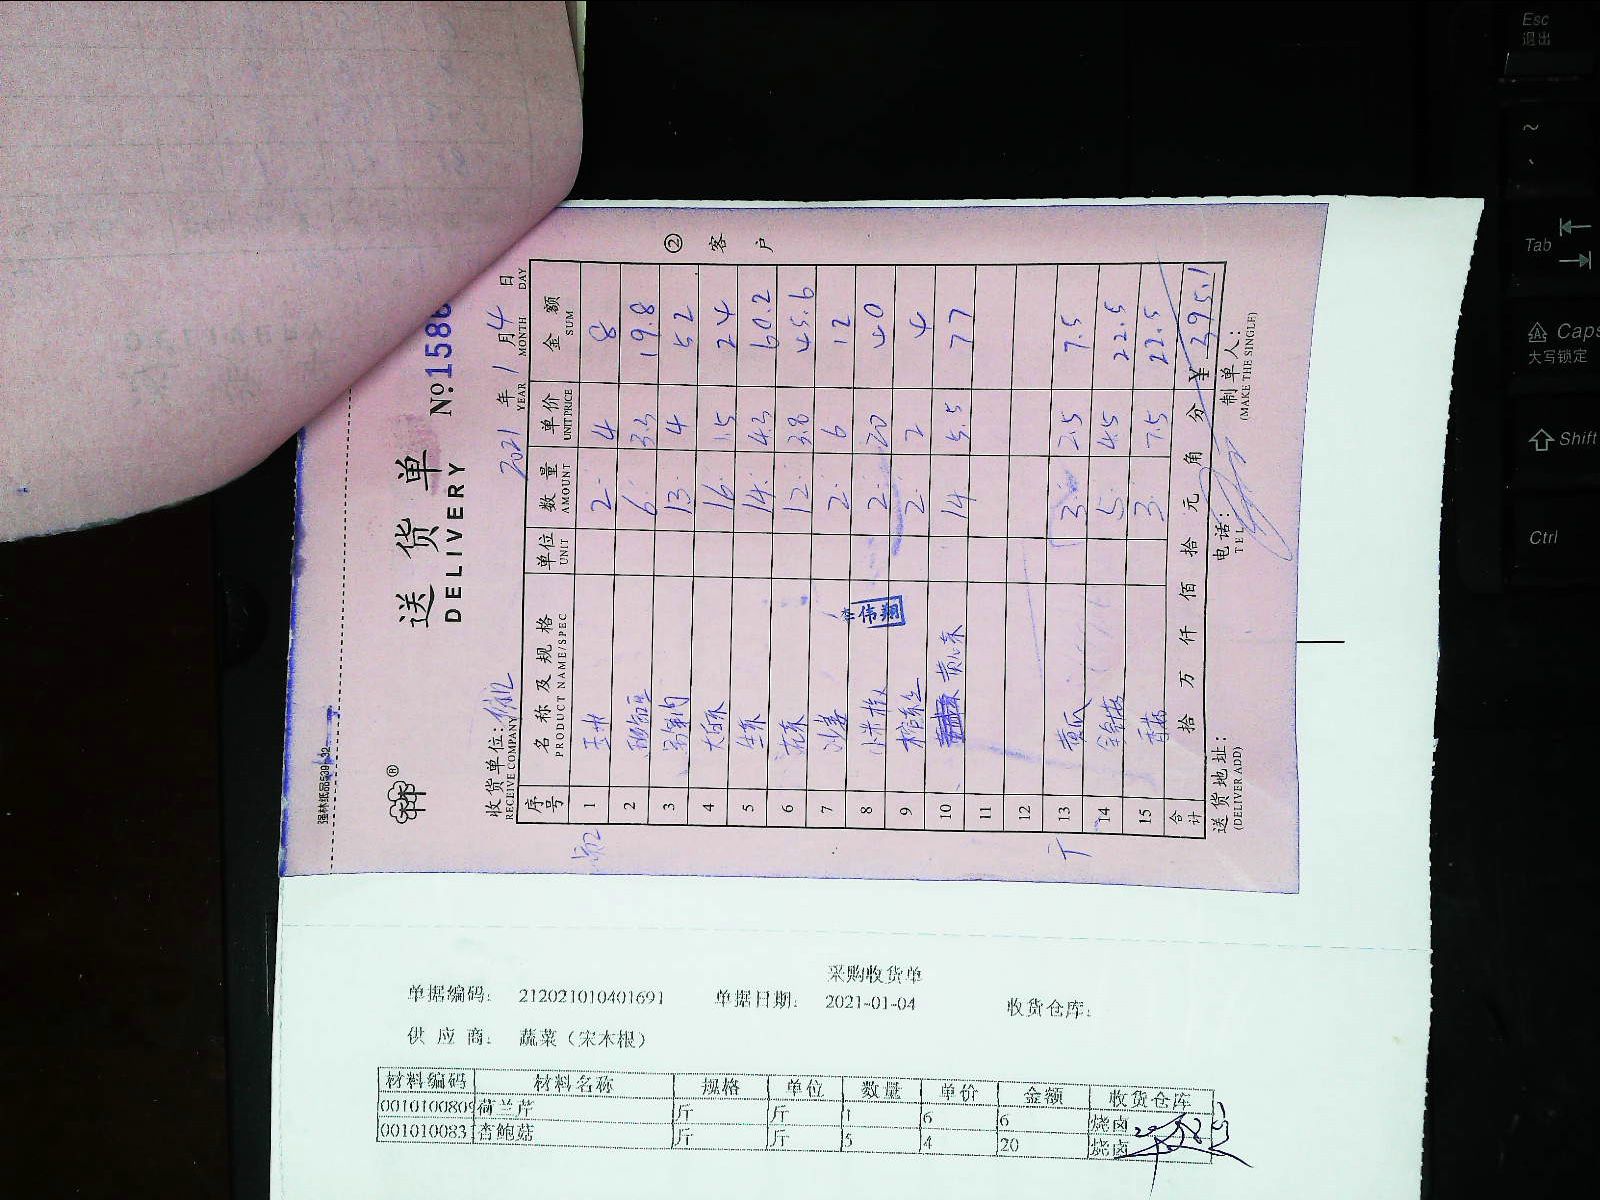 强林纸品539-32
送货单
DELIVERY
№:1586
收货单位:
RECEIVE COMPANY
2021 年 1 月 4 日
YEAR MONTH DAY
序号 名称及规格 单位 数量 单价 金额
PRODUCT NAME/SPEC UNIT AMOUNT UNIT PRICE SUM
1 玉米 2 4 8
2 6 3.3 19.8
3 13 4 52
4 大白菜 16 1.5 24
5 生菜 14 4.3 60.2
6 花菜 12 3.8 45.6
7 沙姜 2 6 12
8 小米椒 2 20 40
9 2 2 4
10 黄心菜 14 5.5 77
11
12
13 黄瓜 3 2.5 7.5
14 5 4.5 22.5
15 3 7.5 22.5
合计 拾 万 仟 佰 拾 元 角 分 ¥ 395.1
送货地址: 电话: 制单人:
(DELIVER ADD) TEL (MAKE THE SINGLE)
② 客户
李伟翔
采购收货单
单据编码: 212021010401691 单据日期: 2021-01-04 收货仓库:
供应商: 蔬菜（宋木根）
材料编码 材料名称 规格 单位 数量 单价 金额 收货仓库
0010100809 荷兰芹 斤 斤 1 6 6 烧卤
001010083 杏鲍菇 斤 斤 5 4 20 烧卤
Esc
退出
~
Tab
Caps
大写锁定
Shift
Ctrl